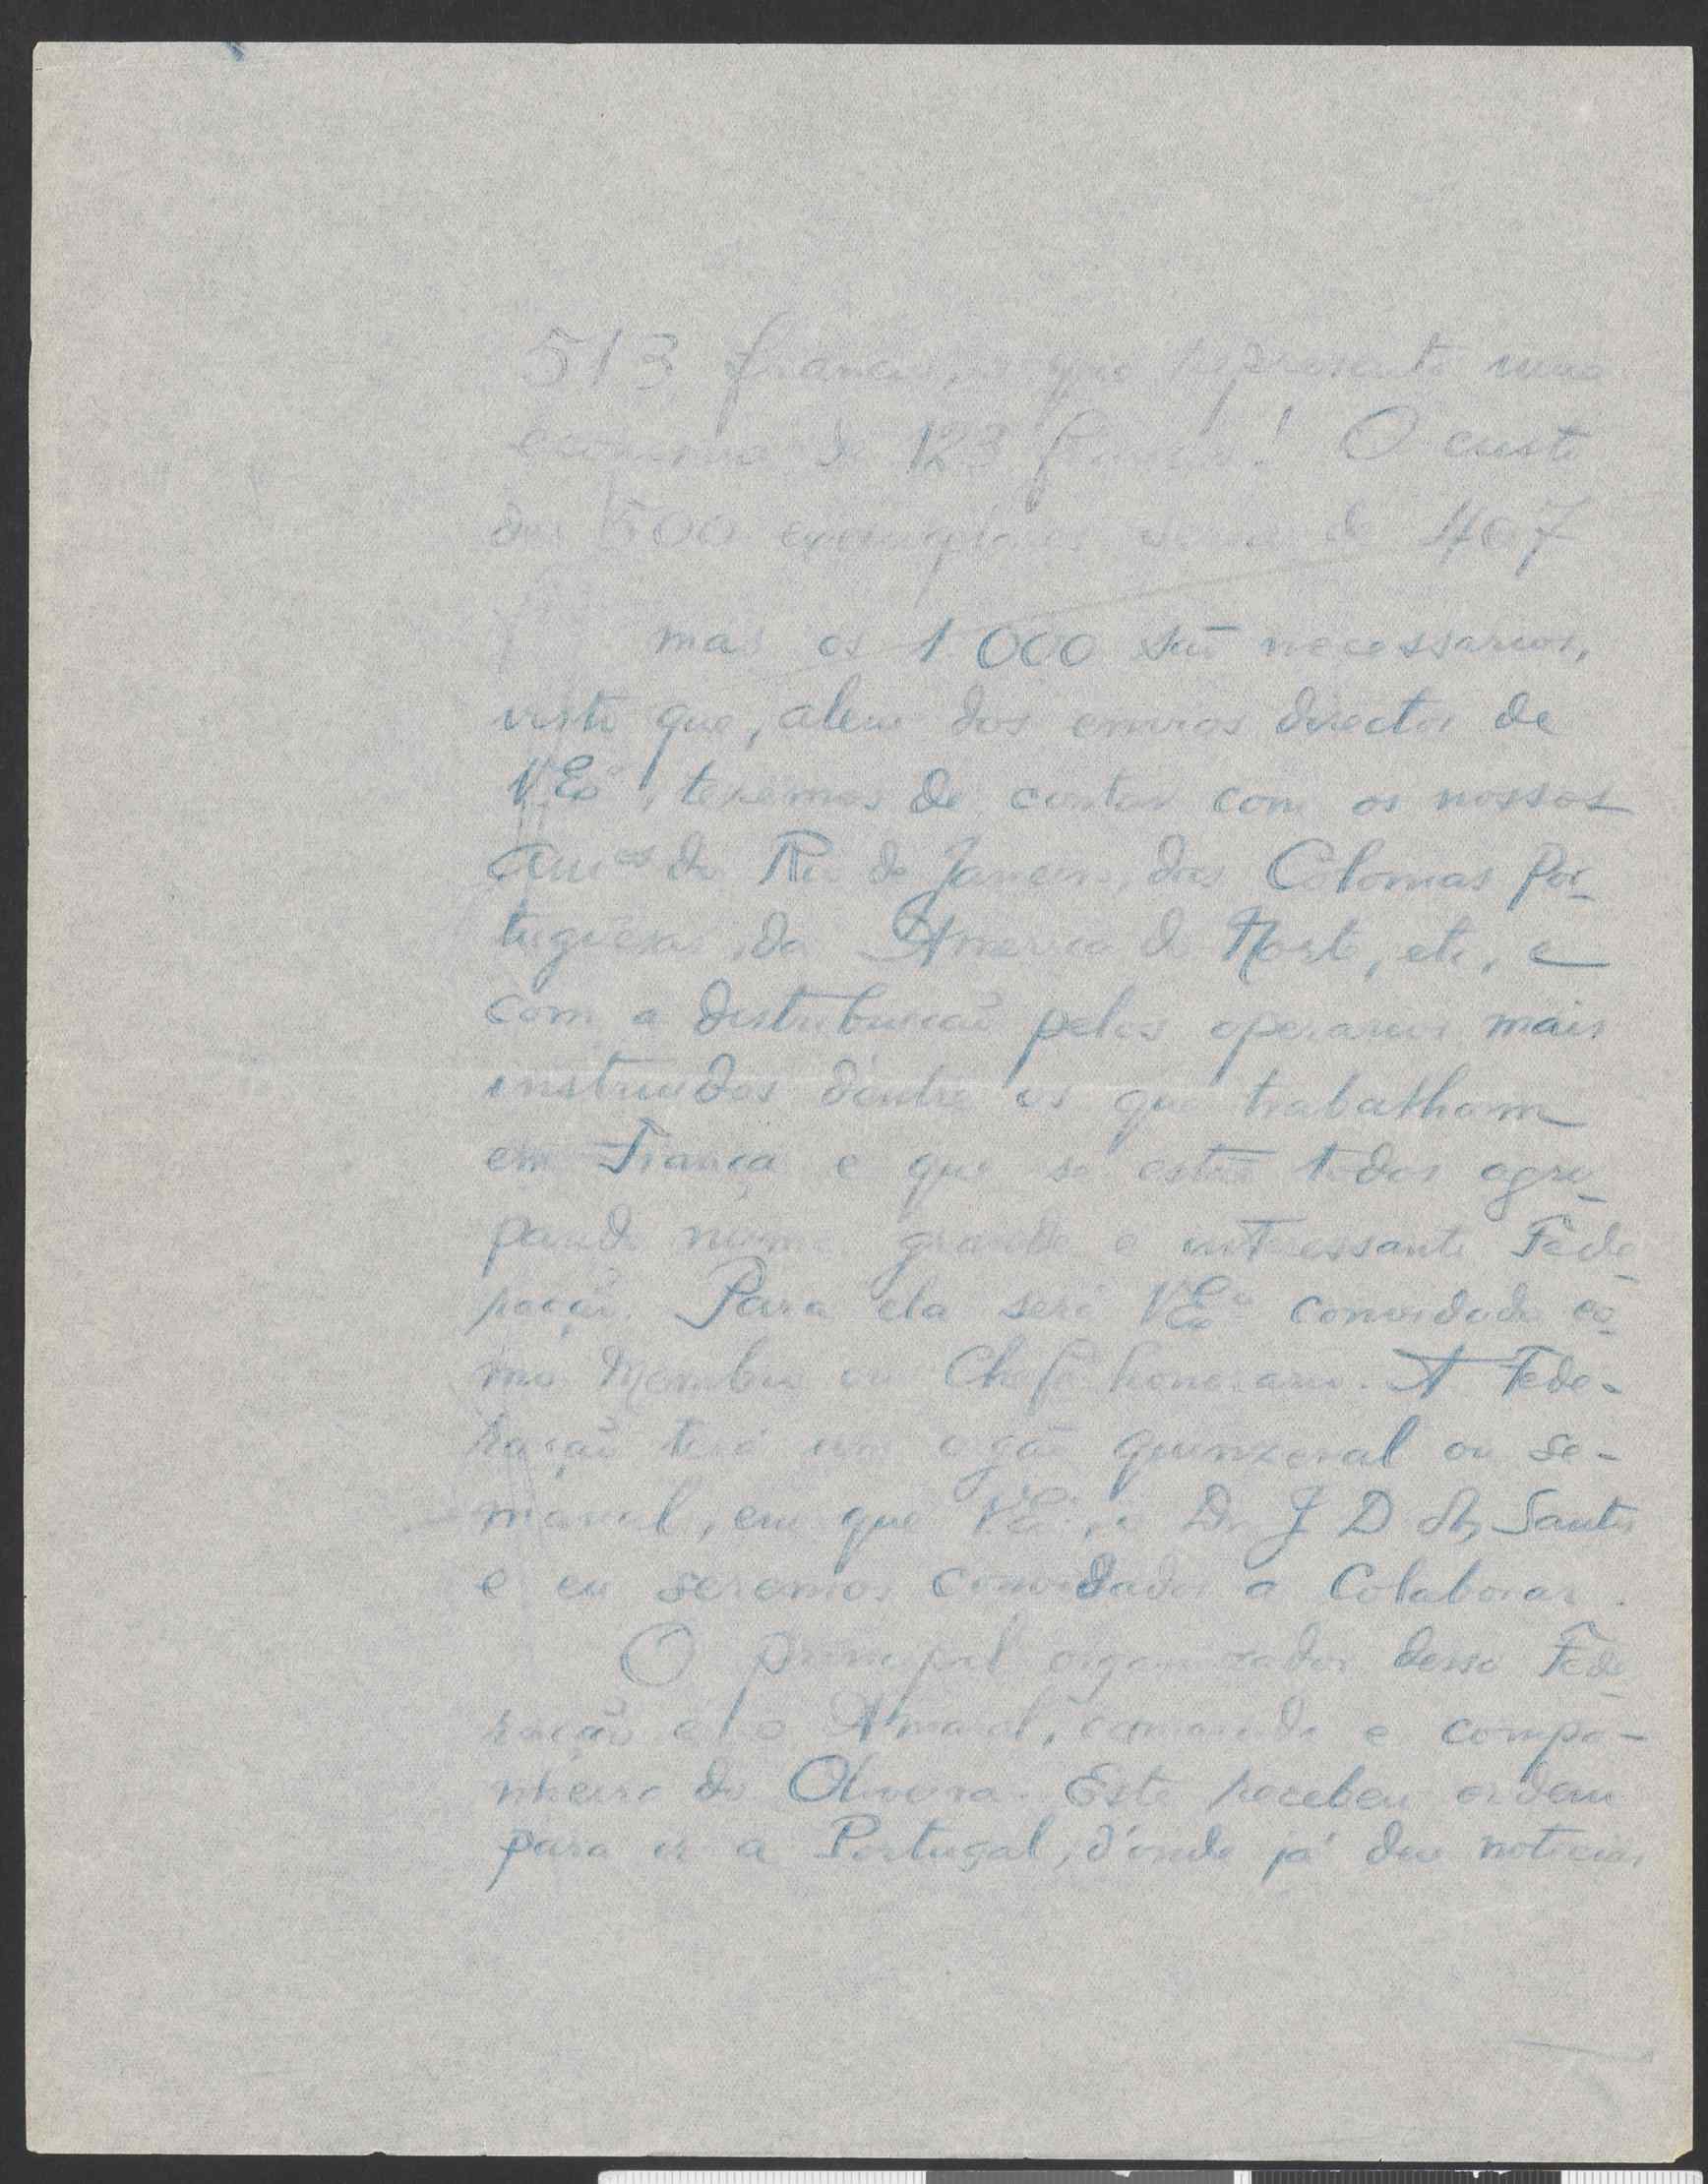 513 francos, o que representa uma
economia de 123 francos! O custo
dos 500 exemplares seria de 467
mas os 1000 são necessarios,
visto que, alem dos envios directos de
V. Exª, teremos de contar com os nossos
amºs do Rio de Janeiro, das Colonias Por-
tuguêsas, da America do Norte, etc, e
com a distribuição pelos operarios mais
instruidos dentre os que trabalham
em França e que se estão todos agru-
pando numa grande e interessante Fede-
ração. Para ela será V. Exª convidado co-
mo Membro ou Chefe honorario. A Fede-
ração terá um orgão quinzenal ou se-
manal, em que V. Exª, o Dr J D Santos
e eu seremos convidados a Colaborar.
O principal organizador dessa Fede-
ração é o Amaral, camarada e compa-
nheiro do Oliveira. Este recebeu ordem
para ir a Portugal, d'onde já deu noticias,